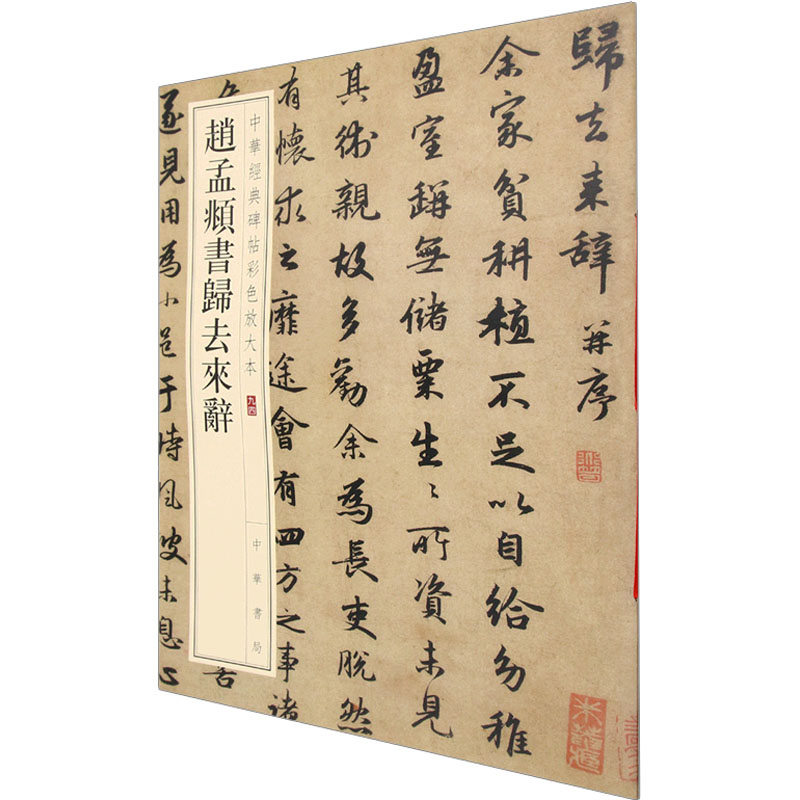 歸去来辞并序
余家貧耕植不足以自給幼稚
盈室缾無儲粟生〻所資未見
其術親故多勸余為長吏脫然
有懷求之靡途會有四方之事諸
遂見用為小邑于時風波未息心
中華經典碑帖彩色放大本 九四
趙孟頫書歸去來辭
中華書局